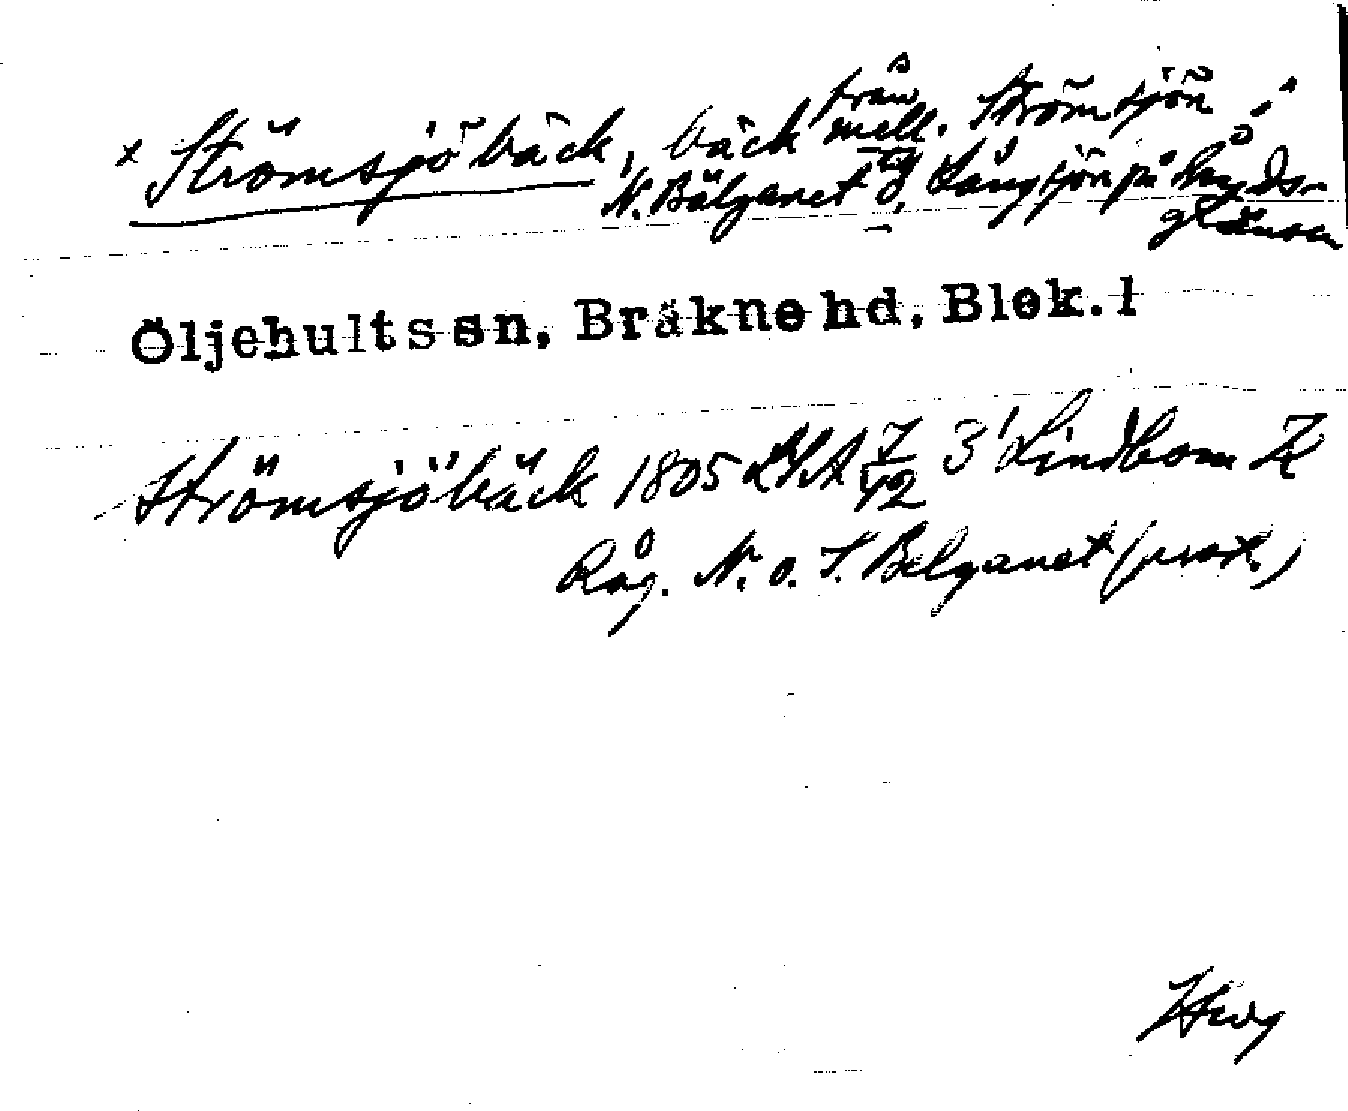 x Strömsjöbäck, bäck från mell. Strömsjön i
N. Bälganet o. Långsjön på lands-
gränsen
Öljehults sn, Bräkne hd, Blek. l
Strömsjöbäck 1805 LSA 7/42 3' Lindbom K
Råg. N. o. S. Belganet (prot.)